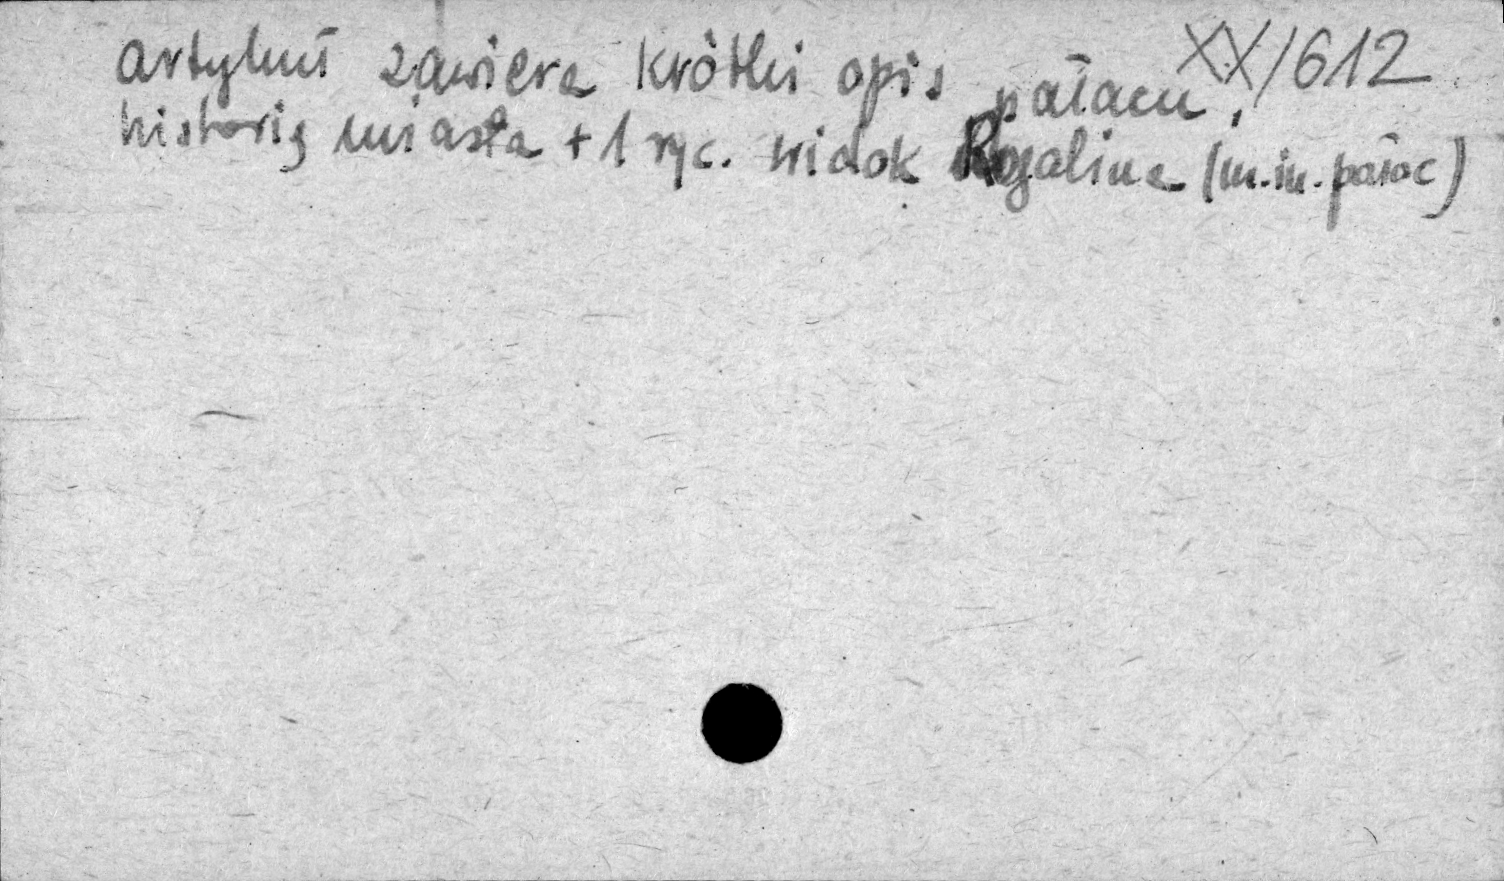 XX/612
artykuł zawiera krótki opis pałacu,
historię miasta + 1 ryc. widok Rogalina (m.in. pałac)